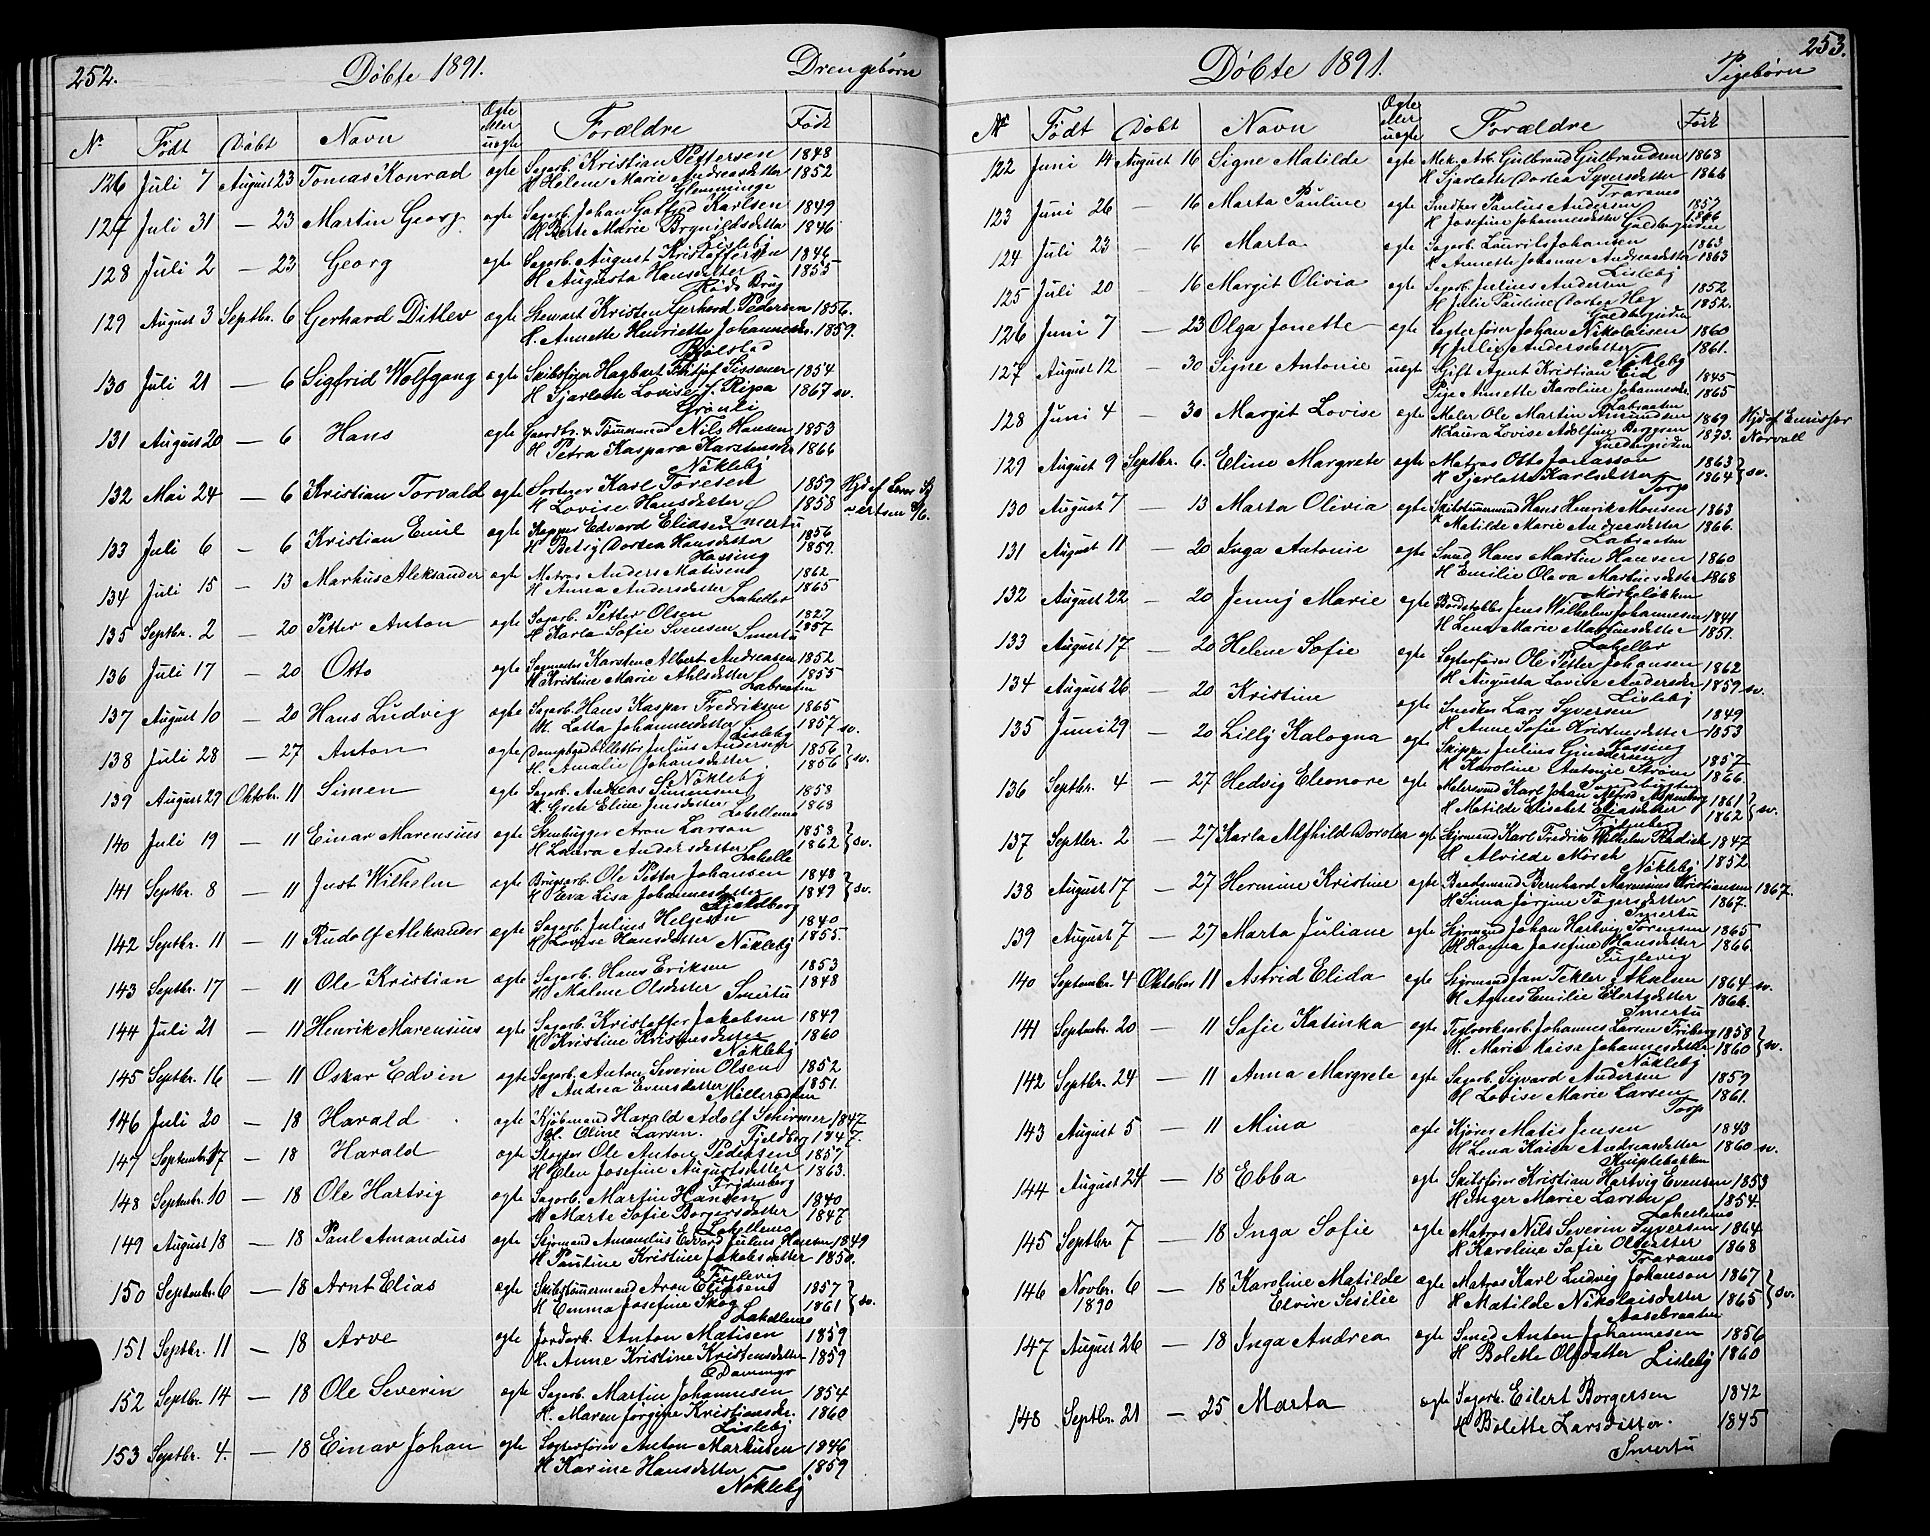 252.
Døbte 1891.
Drengebørn
No
Født
Døbt
Navn
Ægte eller uægte
Forældre
Født
126 Juli 7 August 23 Tomas Konrad ægte Sagarb. Kristian Pettersen 1848
H Helene Marie Andreasdetter 1852
Glemminge
127 Juli 31 — 23 Martin Georg ægte Sagarb. Johan Gotfred Karlsen 1849
H Berte Marie Brynildsdetter 1846
Lisleby
128 Juli 2 — 23 Georg ægte Sagarb. August Kristoffersen 1846
H Augusta Hansdetter 1855
Røds Brug
129 August 3 Septbr. 6 Gerhard Ditlev ægte Stewart Kristen Gerhard Pedersen 1856.
H. Annette Henriette Johannesdr. 1859.
Bjølstad
130 Juli 21 — 6 Sigfrid Wolfgang ægte Skibstejn Hagbart Fritjof Sissener 1854
H Sjarlotte Lovise J. Ripa 1867 sv.
Grønli
131 August 20 — 6 Hans ægte Gaardbr. & Tømmermand Nils Hansen 1853
H Petra Kaspara Karstensdr 1866
Nøkleby
132 Mai 24 — 6 Kristian Torvald ægte Sorterer Karl Toresen 1857 Hjdøf
H Lovise Hansdetter 1858
Smertu
133 Juli 6 — 6 Kristian Emil ægte Kapper Edvard Eliasen 1856
H Betsy Dortea Hansdetter 1859.
Hassing
134 Juli 15 — 13 Markus Aleksander ægte Matros Anders Matisen 1862
H Anna Andersdetter 1865
Laheller
135 Septbr. 2 — 20 Petter Anton ægte Sagarb. Petter Olsen 1827
H Karla Sofie Svensen 1857
Smertu
136 Juli 17 — 20 Otto ægte Sagmester Karsten Albert Andreasen 1852
H Kristine Marie Ahlsdetter 1855
Labraaten
137 August 10 — 20 Hans Ludvig ægte Sagarb. Hans Kaspar Fredriksen 1865
H. Lotta Johannesdetter 1857 sv.
Lisleby
138 Juli 28 — 27 Anton ægte Julius Andersen 1856
H. Amalie Johansdetter 1856 } sv.
Nøkleby
139 August 29 Oktobr. 11 Simen ægte Sagarb. Andreas Simensen 1858
H. Grete Eline Jensdetter 1863
Lahellemo
140 Juli 19 — 11 Einar Marensius ægte Stenhugger Aron Larson 1853
H Laura Andersdetter 1862 } sv.
Lahelle
141 Septbr. 8 — 11 Just Wilhelm ægte Brugsarb. Ole Petter Johansen 1848
H Eva Lisa Johannesdetter 1849 } sv.
Fjeldberg
142 Septbr. 11 — 11 Rudolf Aleksander ægte Sagarb. Julius Helgesen 1840
H Lovise Hansdetter 1855.
Nøkleby
143 Septbr. 17 — 11 Ole Kristian ægte Sagarb. Hans Eriksen 1853
H Malene Olsdetter 1848
Smertu
144 Juli 21 — 11 Henrik Marensius ægte Sagarb. Kristoffer Jakobsen 1849
H Kristine Kristensdetter 1860
Nøkleby
145 Septbr. 16 — 11 Oskar Edvin ægte Sagarb. Anton Severin Olsen 1852
H Andrea Evensdetter 1851.
Møllerodden
146 Juli 20 — 18 Harald ægte Kjøbmand Harald Adolf Schirmer 1847
H. Oline Larsen. 1847.
Fjeldberg
147 Septembr. 17 — 18 Harald ægte Stopper Ole Anton Pedersen 1857
H Elen Josefine Augustsdetter 1863.
Fridenberg
148 Septembr. 10 — 18 Ole Hartvig ægte Sagarb. Martin Hansen 1840
H Marte Sofie Borgersdatter 1847
Lahellemo
149 August 18 — 18 Paul Amandus ægte Styrmand Amandus Edvard Julius Hansen 1849
H Pauline Kristine Jakobsdetter 1850.
Fuglevig
150 Septembr 6 — 18 Arnt Elias ægte Skibstømmermand Aron Eliasen 1857
H Emma Josefine Skog 1861 } sv.
Lahellemo
151 Septbr. 11 — 18 Arve ægte Jordarb. Anton Matisen 1859
H. Anne Kristine Kristensdetter 1859
152 Septbr. 14 — 18 Ole Severin ægte Sagarb. Martin Johannesen 1854
H. Maren Jørgine Kristiansdr. 1860
Lisleby
153 Septbr. 4. — 18 Einar Johan ægte Sagterfører Anton Markusen 1846
H Karine Hansdetter 1859
Nøkleby
253.
Døbte 1891.
Pigebørn
No
Født
Døbt
Navn
Ægte eller uægte
Forældre
Født
122 Juni 14 August 16 Signe Matilde ægte Mek. Arb. Gulbrand Gulbrandsen 1863
H Sjarlotte Dortea Syversdetter 1866
Traramo
123 Juni 26 — 16 Marta Pauline ægte Snedker Paulius Andersen 1857
H Josefine Johannesdetter 1866
Guldbergsiden
124 Juli 23 — 16 Marta ægte Sagarb. Laurits Johansen 1863
H Annette Johanne Andreasdetter 1863
Lisleby
125 Juli 20 — 16 Margit Olivia ægte Sagarb. Julius Andersen 1852
H Julie Pauline Dortea Heg 1852.
Guldbergsiden
126 Juni 7 — 23 Olga Jonette ægte Sagterfører Johan Nikolaisen 1860
H Julie Andersdetter 1861.
Nøkleby
127 August 12 — 30 Signe Antonie uægte Gift Agent Kristian Eid 1845
Pige Annette Karoline Johannesdr. 1865
Labraaten
128 Juni 4 — 30 Margit Lovise ægte Maler Ole Martin Amundsen 1869 Hjdøf Emissær
H Laura Lovise Adolfine Berggren 1873. Norvall
Guldbergsiden
129 August 9 Septbr. 6. Eline Margrete ægte Matros Otto Jonasson 1863
H Sjarlotte Karlsdetter 1864 } sv.
Torp
130 August 7 — 13 Marta Olivia ægte Skibstømmermand Hans Henrik Monsen 1863
H Matilde Marie Andersdetter 1866.
Labraaten
131 August 11 — 20 Inga Antonie ægte Smed Hans Martin Hansen 1860
H Emilie Olava Martinsdetter 1868
Mørkeløkken
132 August 22 — 20 Jenny Marie ægte Bordstabler Jens Wilhelm Johannesen 1841
H Lena Marie Martinsdetter 1851.
Laheller
133 August 17 — 20 Helene Sofie ægte Sagterfører Ole Petter Johansen 1862
H Augusta Lovise Andersdr 1859 sv.
Lisleby
134 August 26 — 20 Kristine ægte Snedker Lars Syversen 1849
H Anne Sofie Kristensdetter 1853
Hassing
135 Juni 29 — 20 Lilly Kalogna ægte Skipper Julius Gundersen 1857
H Karoline Antonie Strøm 1866.
136 Septbr. 4 — 27 Hedvig Eleonore ægte Malersvend Karl Johan Alfred 1861
H Matilde Elisabet Eliasdetter 1862 } sv.
137 Septbr. 2 — 27 Karla Alfhild Dorotea ægte Styrmand Karl Fredrik Wilhelm Radich 1847
H Alvilde Mørch 1852
Nøkleby
138 August 17 — 27 Hermine Kristine ægte Baadsmand Bernhard Marensius Kristiansen 1867.
H Sina Jørgine Tøgersdetter 1867.
Smertu
139 August 7 — 27 Marta Juliane ægte Styrmand Johan Hartvig Sørensen 1865
H Hanna Josefine Hansdetter 1866
Fuglevig
140 Septembr. 4 Oktober 11 Astrid Elida ægte Styrmand Jan Tekler Akselsen 1864 sv.
H Agnes Emilie Eilertsdetter 1866.
Smertu
141 Septembr. 20 — 11 Sofie Katinka ægte Teglverksarb. Johannes Larsen Friberg 1858
H. Maria Kaisa Johannesdetter 1860 } sv.
Nøkleby
142 Septbr. 24 — 11 Anna Margrete ægte Sagarb. Sigvard Andersen 1859
H Lovise Marie Larsen 1861.
Torp
143 August 5 — 11 Mina ægte Kjører Matis Jensen 1843
H Lena Kaisa Andreasdetter 1860 sv.
Kniplebakken
144 August 24 — 18 Ebba ægte Skibsfører Kristian Hartvig Evensen 1853
H Inger Marie Larsen 1854.
Lahellemo
145 Septbr. 7 — 18 Inga Sofie ægte Matros Nils Severin Syversen 1864
H Karoline Sofie Olsdatter 1868
Traramo
146 Novbr. 6 — 18 Karoline Matilde ægte Matros Karl Ludvig Johanson 1867
1890 Elvire Sesilie H Matilde Nikolaisdetter 1865 } sv.
Aasebraaten
147 August 26 — 18 Inga Andrea ægte Smed Anton Johannesen 1856
H Bolette Olsdatter 1860
Lisleby
148 Septbr. 21 — 25 Marta ægte Sagarb. Eilert Borgersen 1842
H Bolette Larsdetter. 1845
Smertu